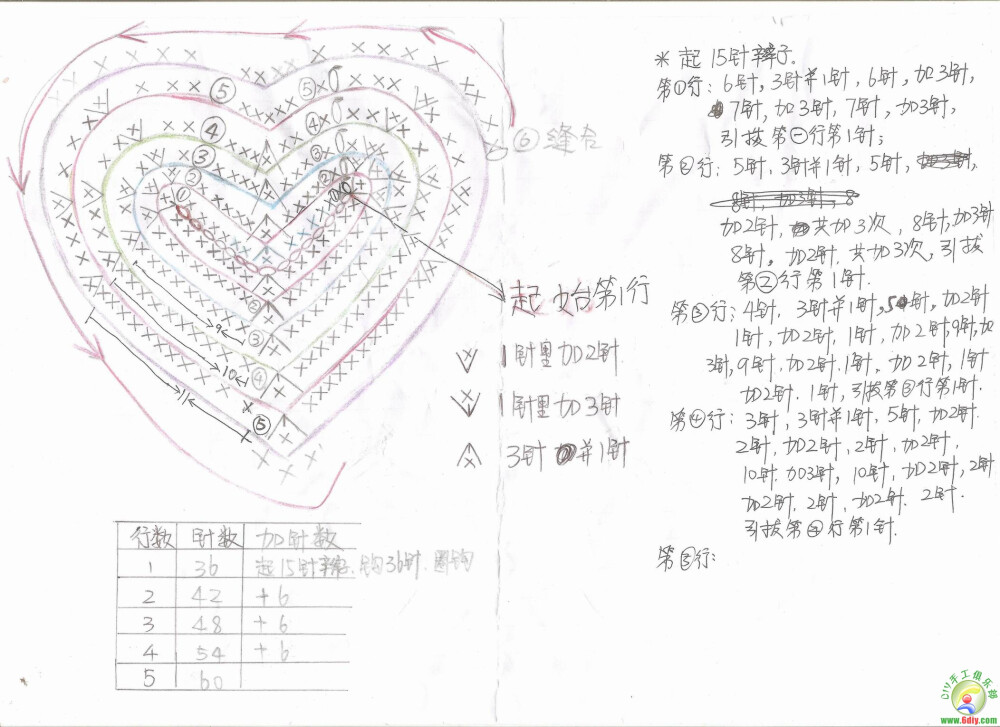 * 起15针辫子.
第①行: 6针, 3针并1针, 6针, 加3针,
7针, 加3针, 7针, 加3针,
引拔第一行第1针;
第②行: 5针, 3针并1针, 5针, 加3针,
8针, 加3针, 8
加2针, 共加3次, 8针, 加3针
8针, 加2针. 共加3次, 引拔
第②行第1针.
第③行: 4针, 3针并1针, 5针, 加2针
1针, 加2针, 1针, 加2针, 9针, 加
3针, 9针. 加2针. 1针, 加2针, 1针
加2针. 1针, 引拔第③行第1针.
第④行: 3针, 3针并1针, 5针, 加2针.
2针, 加2针, 2针, 加2针,
10针. 加3针, 10针, 加2针, 2针
加2针. 2针, 加2针. 2针.
引拔第④行第1针.
第⑤行:
⑥缝合
⑤
⑤
④
④
③
③
②
②
①
②
③
④
⑤
9
10
11
起始第1行
1针里加2针
1针里加3针
3针并1针
行数 针数 加针数
1 36 起15针辫子, 钩36针. 圈钩
2 42 +6
3 48 +6
4 54 +6
5 60
DIY手工俱乐部
www.6diy.com